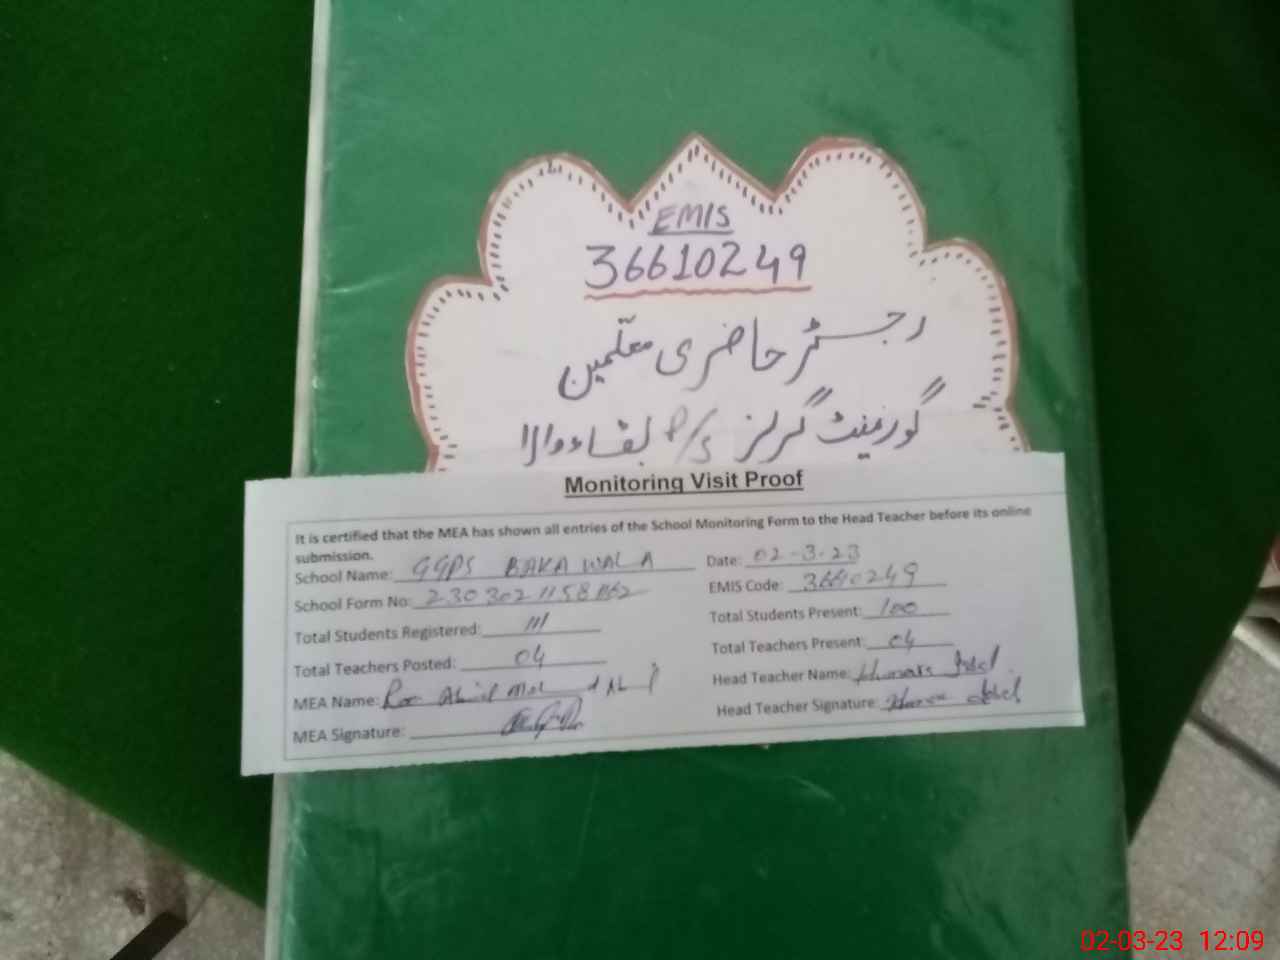 EMIS
36610249
رجسٹر حاضری معلمین
گورنمنٹ گرلز P/S بقاءوالا
Monitoring Visit Proof
It is certified that the MEA has shown all entries of the School Monitoring Form to the Head Teacher before its online
submission.
School Name: GGPS BAKA WALA Date: 02-3-23
School Form No: EMIS Code: 36610249
Total Students Registered: 111 Total Students Present: 100
Total Teachers Posted: 04 Total Teachers Present: 04
MEA Name: Head Teacher Name:
MEA Signature: Head Teacher Signature:
02-03-23 12:09